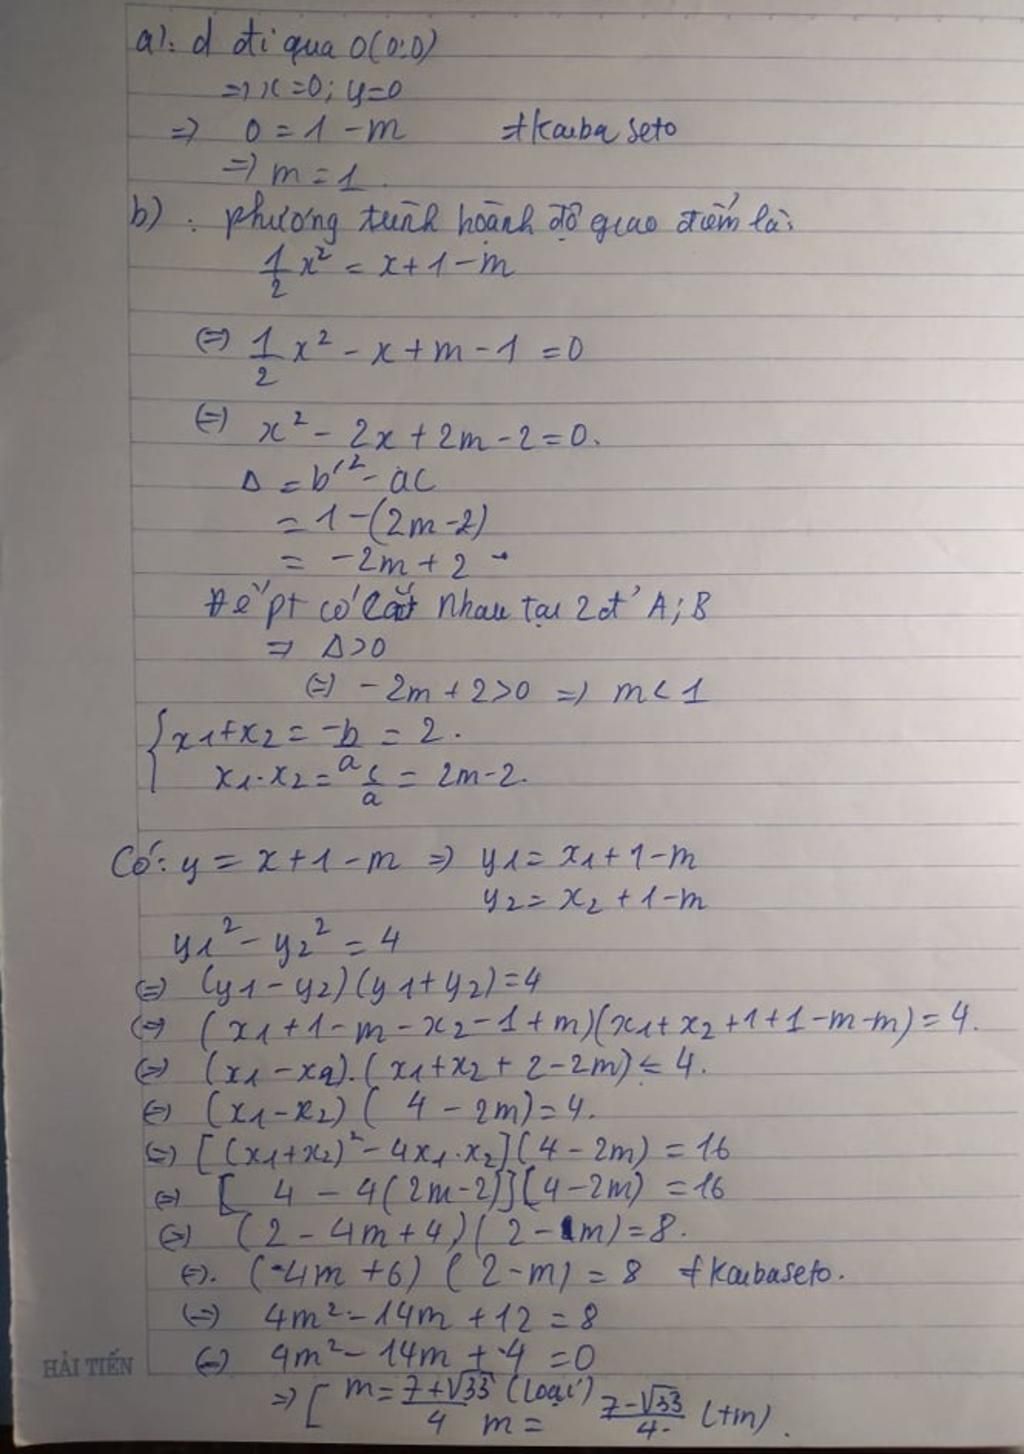 a): d đi qua O(0;0)
=> x=0; y=0
=> 0 = 1 - m    Kaiba Seto
=> m = 1.
b): phương trình hoành độ giao điểm là:
1/2 x² = x+1-m
(=) 1/2 x² - x + m - 1 = 0
(=) x² - 2x + 2m - 2 = 0.
Δ = b'² - ac
= 1-(2m-2)
= -2m + 2
Để pt có cắt nhau tại 2đ' A; B
=> Δ>0
(=) -2m + 2 > 0 => m < 1
{ x1+x2 = -b/a = 2.
x1.x2 = c/a = 2m-2.
Có: y = x+1-m => y1 = x1+1-m
y2 = x2 +1-m
y1² - y2² = 4
(=) (y1-y2)(y1+y2)=4
(=) (x1+1-m-x2-1+m)(x1+x2+1+1-m-m)=4.
(=) (x1-x2).(x1+x2+2-2m) = 4.
(=) (x1-x2)( 4-2m)=4.
(=) [(x1+x2)² - 4x1.x2](4-2m) = 16
(=) [ 4 - 4(2m-2)](4-2m) = 16
(=) (2-4m+4)(2-1m)=8.
(=). (-4m+6) (2-m) = 8    Kaibaseto.
(=) 4m² - 14m + 12 = 8
(=) 4m² - 14m + 4 = 0
HẢI TIẾN
=> [ m = 7+√33/4 (loại) m = 7-√33/4 (tm).